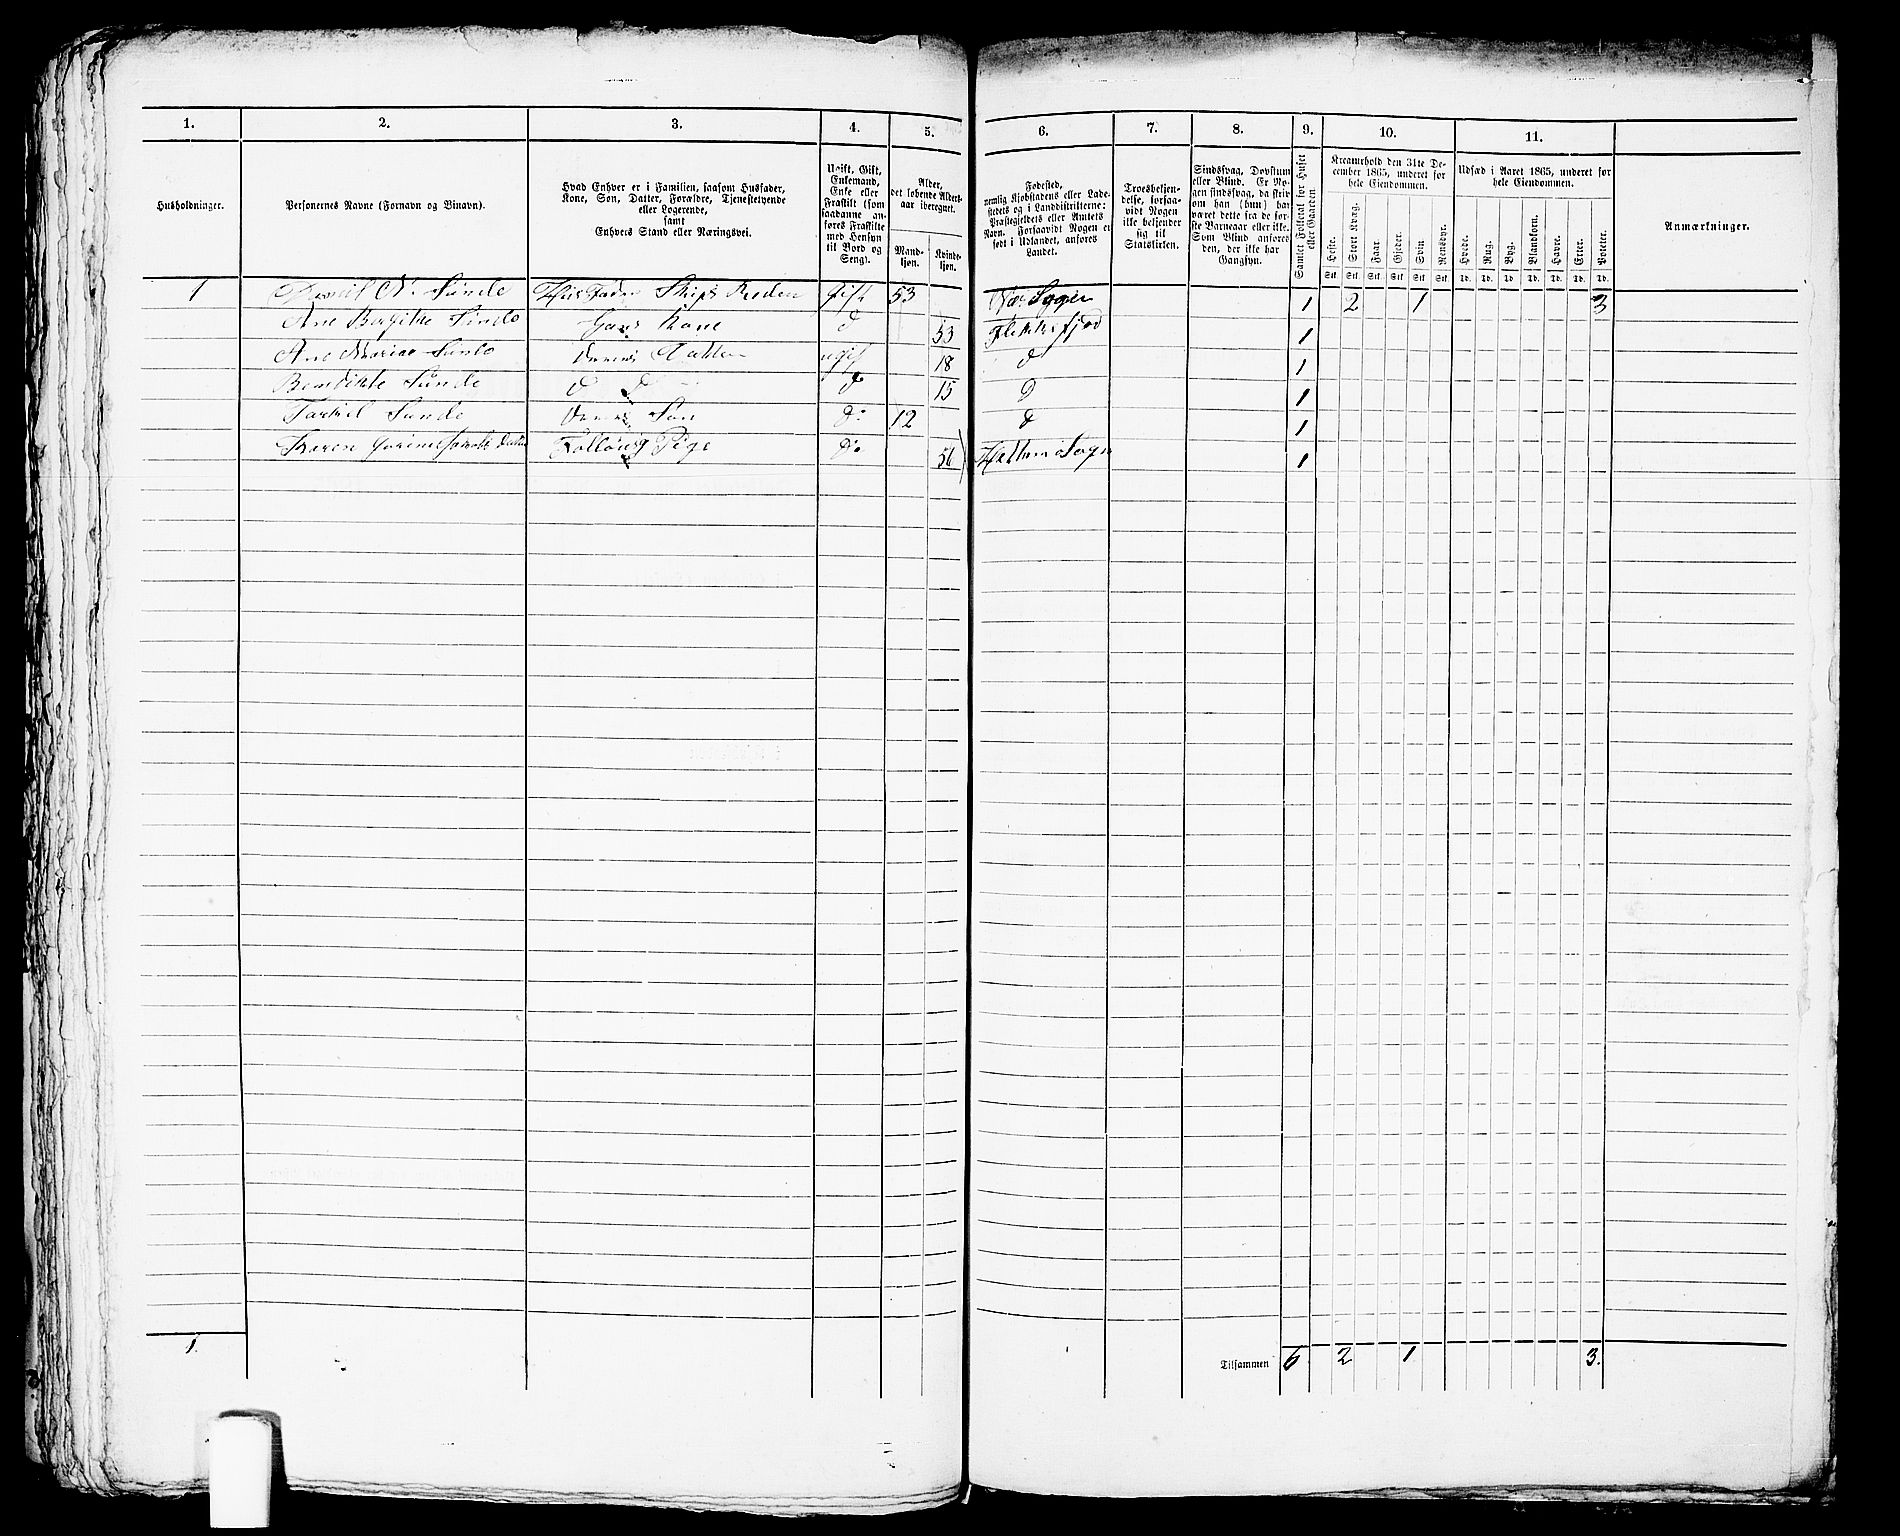 1. 2. 3. 4. 5. 6. 7. 8. 9. 10. 11.
Husholdninger.
Personernes Navne (Fornavn og Binavn).
Hvad Enhver er i Familien, saasom Husfader,
Kone, Søn, Datter, Forældre, Tjenestetyende
eller Logerende,
samt
Enhvers Stand eller Næringsvei.
Ugift, Gift,
Enkemand,
Enke eller
Fraskilt (som
saadanne an-
føres Fraskilte
med Hensyn
til Bord og
Seng).
Alder,
det løbende Alders-
aar iberegnet.
Mand-
kjøn.
Kvinde-
kjøn.
Fødested,
nemlig Kjøbstadens eller Lade-
stedets og i Landdistrikterne:
Præstegjeldets eller Amtets
Navn. Forsaavidt Nogen er
født i Udlandet, anføres
Landet.
Troesbekjen-
delse, forsaa-
vidt Nogen
ikke bekjender
sig til
Statskirken.
Sindssvag, Døvstum
eller Blind. Er No-
gen sindssvag, da skri-
ves om han (hun) har
været dette fra de før-
ste Barneaar eller ikke.
Som Blind anføres
den, der ikke har
Gangsyn.
Samlet Folketal for Huset
eller Gaarden.
Kreaturhold den 31te De-
cember 1865, underet for
hele Eiendommen.
Heste. Stort Kvæg. Faar. Gjeder. Svin. Rensdyr.
Stk. Stk. Stk. Stk. Stk. Stk.
Udsæd i Aaret 1865, underet for
hele Eiendommen.
Hvede. Rug. Byg. Blandkorn. Havre. Erter. Poteter.
Td. Td. Td. Td. Td. Td. Td.
Anmærkninger.
1 Daniel N. Sunde Huusfader Skips Reeder Gift 53 1 2 1 3
Ane Sunde Hans Kone d 53 Flekkefjord 1
Ane Marie Sunde Deres Datter ugift 18 d 1
Bendikte Sunde d d d 15 D 1
Tarkil Sunde Deres Søn d: 12 d 1
Karen Pige d: 56 Sogn 1
1. Tilsammen 6 2 1 3.